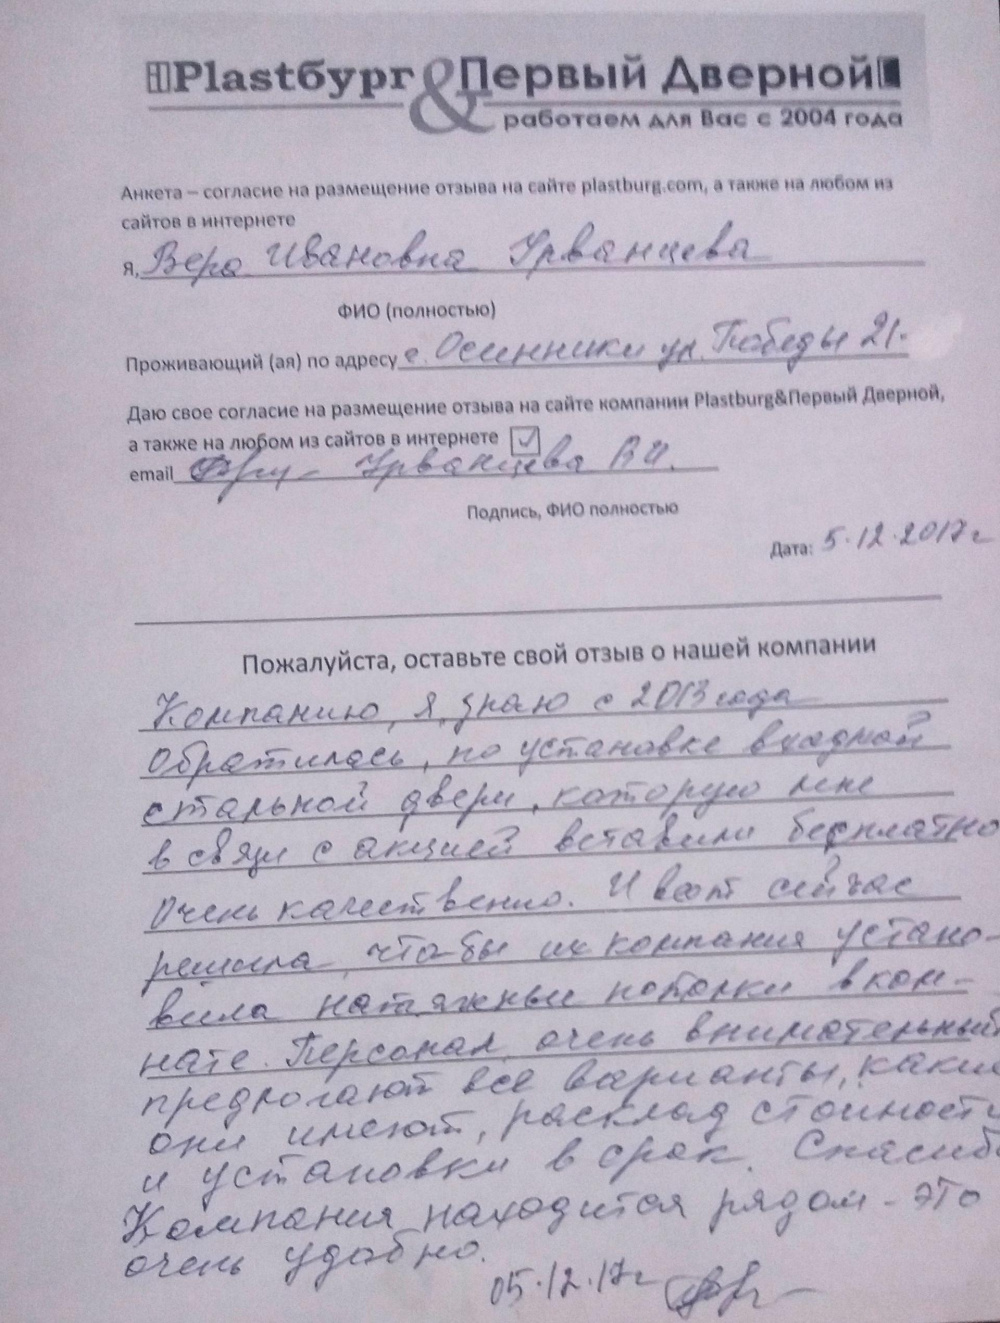 Plastбург & Первый Дверной
работаем для Вас с 2004 года
Анкета – согласие на размещение отзыва на сайте plastburg.com, а также на любом из
сайтов в интернете
я, Вера Ивановна Урванцева
ФИО (полностью)
Проживающий (ая) по адресу г. Осинники ул. Победы 21.
Даю свое согласие на размещение отзыва на сайте компании Plastburg&Первый Дверной,
а также на любом из сайтов в интернете ✓
email Урванцева В И.
Подпись, ФИО полностью
Дата: 5.12.2017г
Пожалуйста, оставьте свой отзыв о нашей компании
Компанию, я знаю с 2013 года
Обратилась, по установке входной
стальной двери, которую мне
в связи с акцией вставили бесплатно
Очень качественно. И вот сейчас
решила, чтобы их компания устано-
вила натяжные потолки в ком-
нате. Персонал, очень внимательный
предлогают все варианты, какие
они имеют, расклад стоимости
и установки в срок. Спасибо
Компания находится рядом - это
очень удобно.
05.12.17г